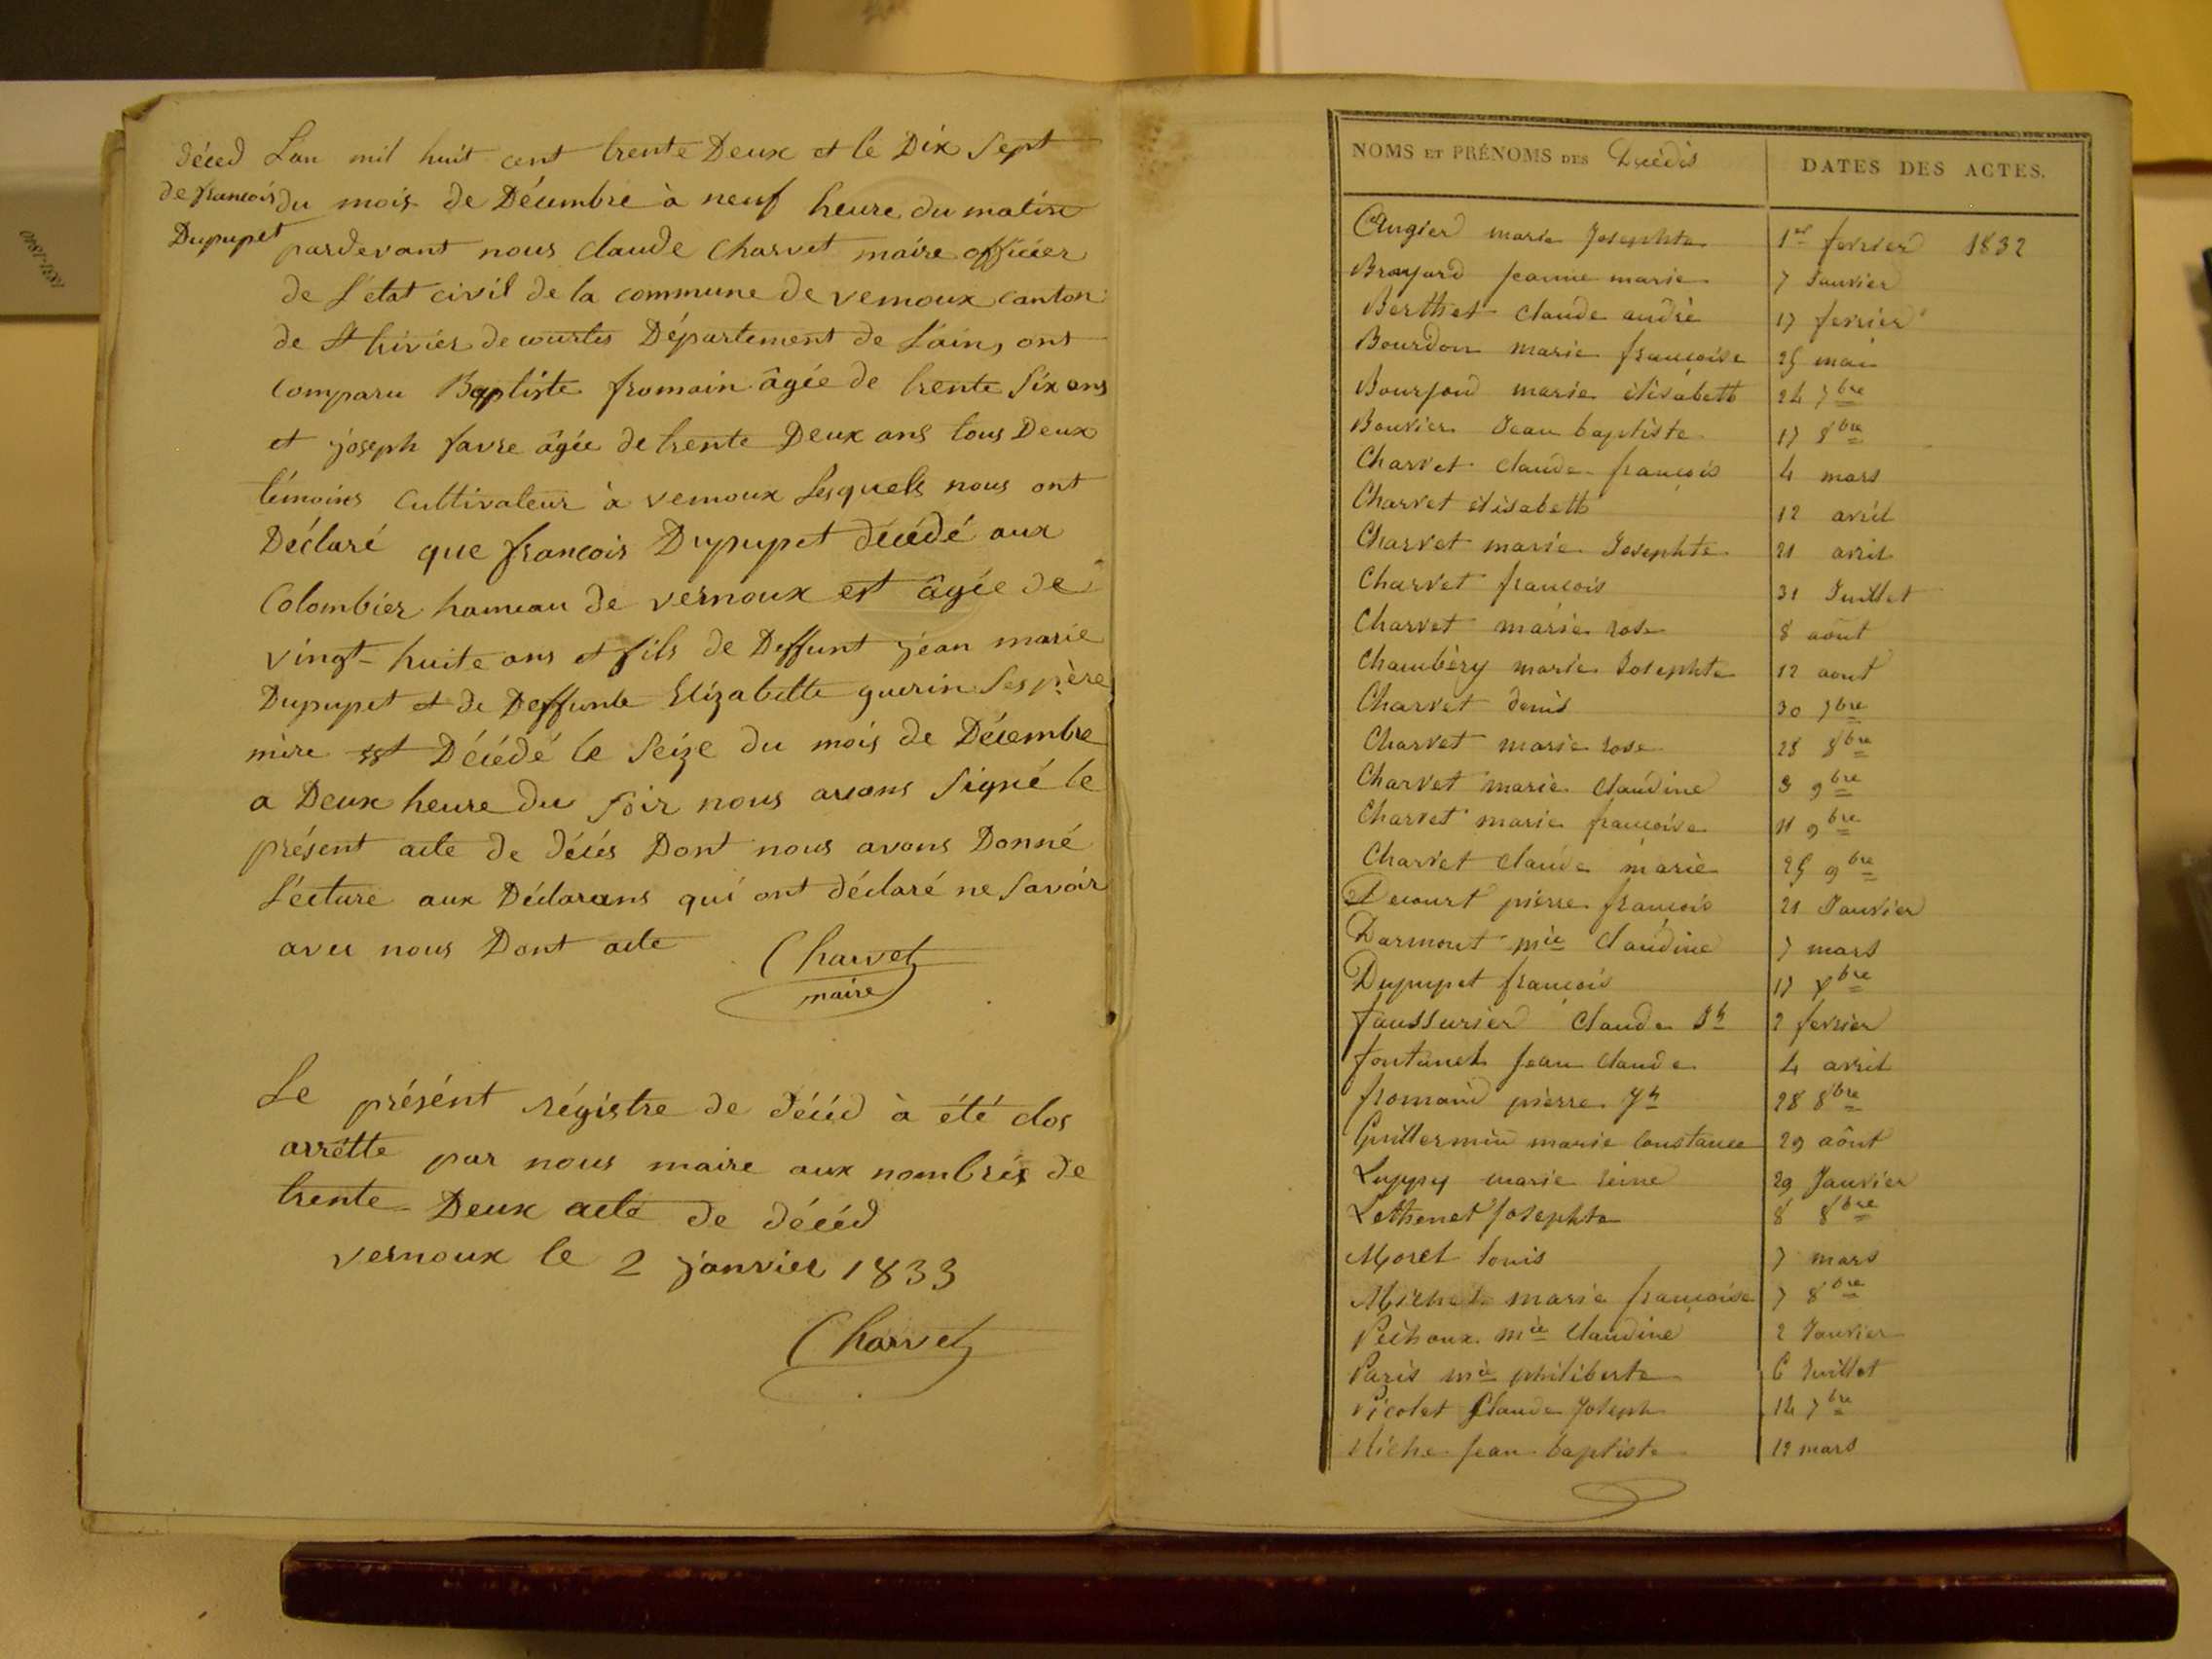 décéd
de francois
Dupupet
L'an mil huit cent trente Deux et le Dix Sept
du mois de Décembre à neuf heure du matin
pardevant nous claude Charvet maire officier
de L'état civil de la commune de vernoux canton
de St trivier de courtes Département de L'ain, ont
comparu Baptiste fromain âgée de trente Six ans
et joseph favre âgée de trente Deux ans tous Deux
témoins cultivateur à vernoux Lesquels nous ont
Déclaré que francois Dupupet décédé aux
Colombier hameau de vernoux est âgée de
vingt-huite ans et fils de Deffunt jean marie
Dupupet et de Deffunte Elizabette guerin Ses père
mère est Décédé le Seize du mois de Décembre
a Deux heure du Soir nous avons Signé le
présent acte de décés Dont nous avons Donné
Lécture aux Déclarans qui ont déclaré ne Savoir
avec nous Dont acte
Charvet
maire
Le présént régistre de décéd à été clos
arrétte par nous maire aux nombres de
trente Deux acte de décéd
vernoux le 2 janvier 1833
Charvet
NOMS ET PRÉNOMS DES Décédés DATES DES ACTES.
Augier marie Josephte 1er fevrier 1832
Brayard Jeanne marie 7 Janvier
Berthet claude andré 17 fevrier
Bourdon marie francoise 25 mai
Bourjoud marie élisabeth 24 7bre
Bouvier Jean baptiste 17 8bre
Charvet claude francois 4 mars
Charvet élisabeth 12 avril
Charvet marie Josephte 21 avril
Charvet francois 31 Juillet
Charvet marie rose 8 août
Chambéry marie Josephte 12 aout
Charvet denis 30 7bre
Charvet marie rose 28 8bre
Charvet marie claudine 3 9bre
Charvet marie francoise 11 9bre
Charvet claude marie 25 9bre
Decourt pierre francois 21 Janvier
Darmont mie Claudine 7 mars
Dupupet francois 17 Xbre
faussurier Claude Jh 2 fevrier
fontanel Jean claude 4 avril
fromand pierre Jh 28 8bre
Guillermin marie Constance 29 août
Luppy marie reine 29 Janvier
Lethenet Josephte 8 8bre
Morel louis 7 mars
Michel marie francoise 7 8bre
Péchoux mie Claudine 2 Janvier
Paris mie philiberte 6 Juillet
Picolet Claude Joseph 14 7bre
Riche Jean baptiste 19 mars